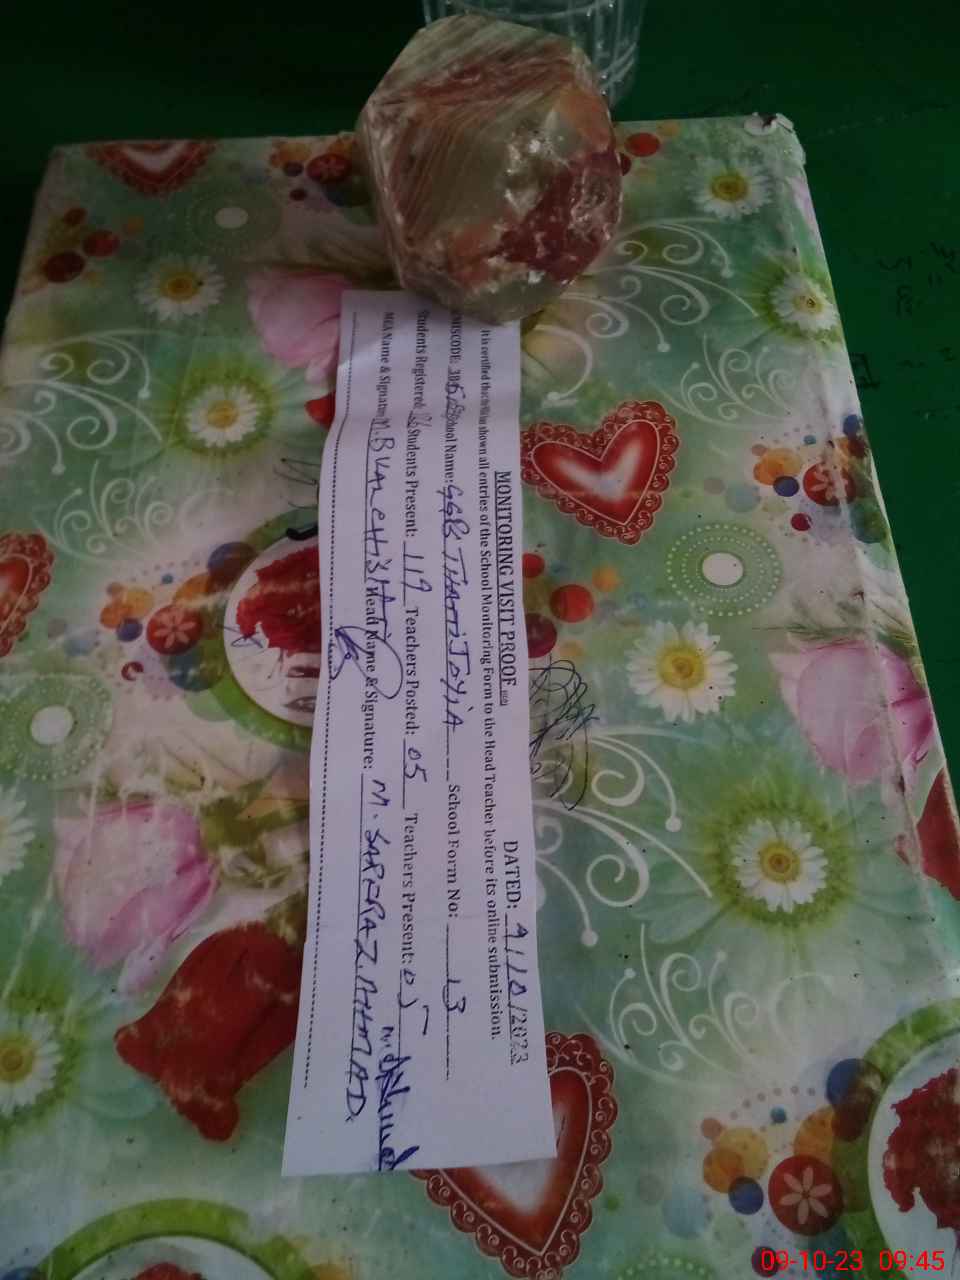 MONITORING VISIT PROOF DATED: 9/10/2023
It is certified that I have shown all entries of the School Monitoring Form to the Head Teacher before its online submission.
School Name: JOYIA School Form No: 13
Students Registered: Students Present: 119 Teachers Posted: 05 Teachers Present: 05
MEA Name & Signature: M. Head Name & Signature: M. SARFRAZ AHMAD
09-10-23 09:45